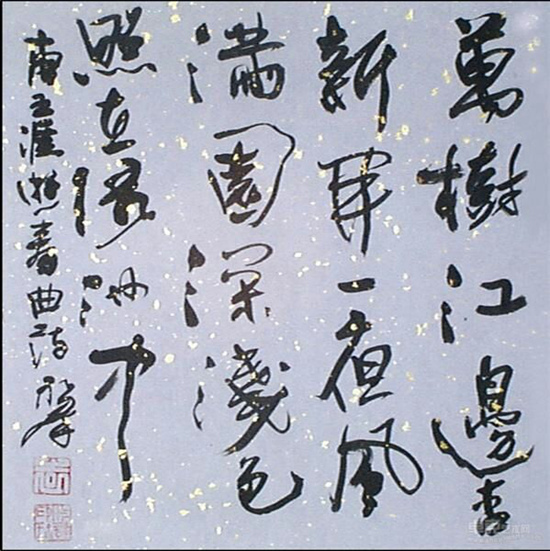 萬樹江邊杏
新開一夜風
滿園深淺色
照在綠波中
唐王涯遊春曲詩